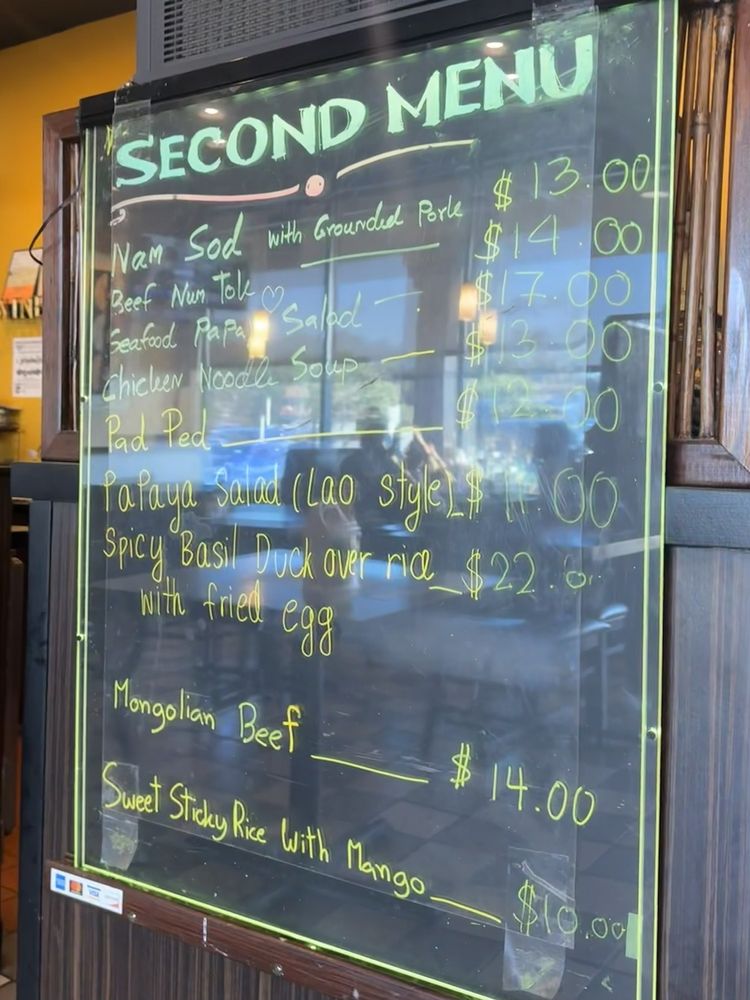 SECOND MENU
Nam Sod with Grounded Pork $13.00
Beef Num Tok $14.00
Seafood Papa Salad $17.00
Chicken Noodle Soup $13.00
Pad Ped $12.00
Papaya Salad (Lao style) $11.00
Spicy Basil Duck over rice $22.0
with fried egg
Mongolian Beef $14.00
Sweet Sticky Rice With Mango $10.00
VISA